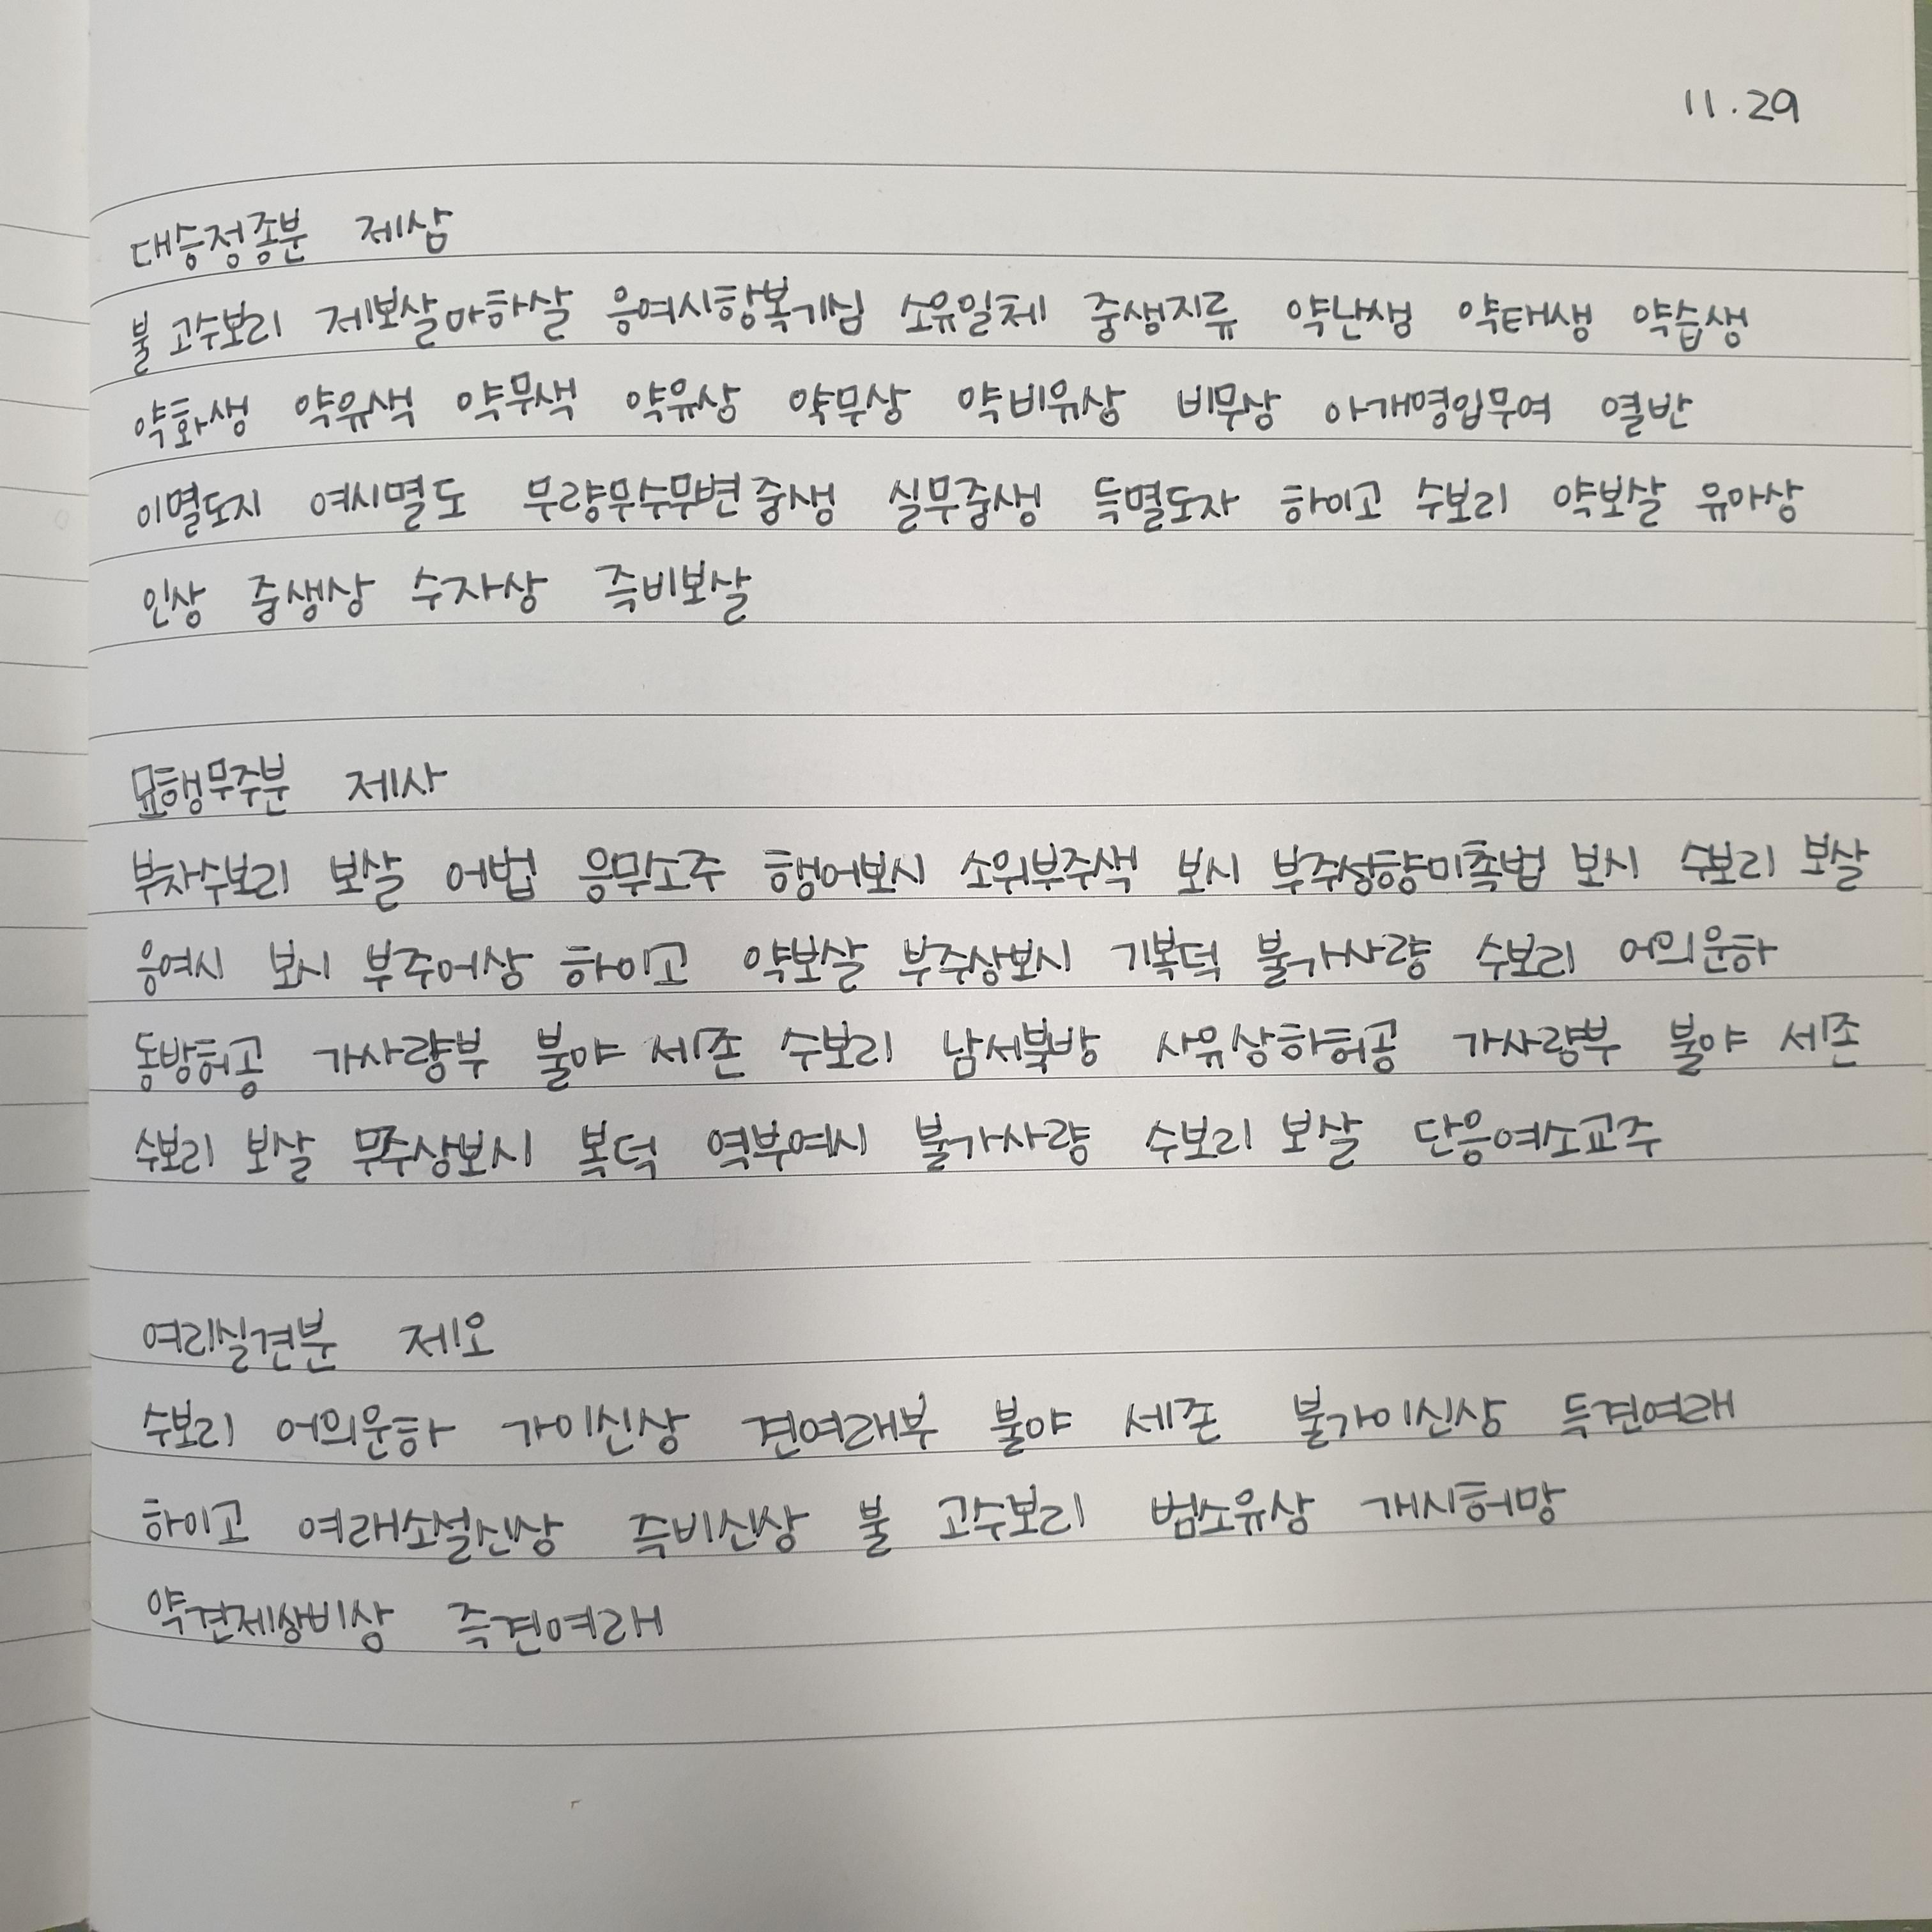 11.29
대승정종분 제삼
불 고수보리 제보살마하살 응여시항복기심 소유일체 중생지류 약난생 약태생 약습생
약화생 약유색 약무색 약유상 약무상 약비유상 비무상 아개영입무여 열반
이멸도지 여시멸도 무량무수무변중생 실무중생 득멸도자 하이고 수보리 약보살 유아상
인상 중생상 수자상 즉비보살
묘행무주분 제사
부차수보리 보살 어법 응무소주 행어보시 소위부주색 보시 부주성향미촉법 보시 수보리 보살
응여시 보시 부주어상 하이고 약보살 부주상보시 기복덕 불가사량 수보리 어의운하
동방허공 가사량부 불야 세존 수보리 남서북방 사유상하허공 가사량부 불야 세존
수보리 보살 무주상보시 복덕 역부여시 불가사량 수보리 보살 단응여소교주
여리실견분 제오
수보리 어의운하 가이신상 견여래부 불야 세존 불가이신상 득견여래
하이고 여래소설신상 즉비신상 불 고수보리 범소유상 개시허망
약견제상비상 즉견여래